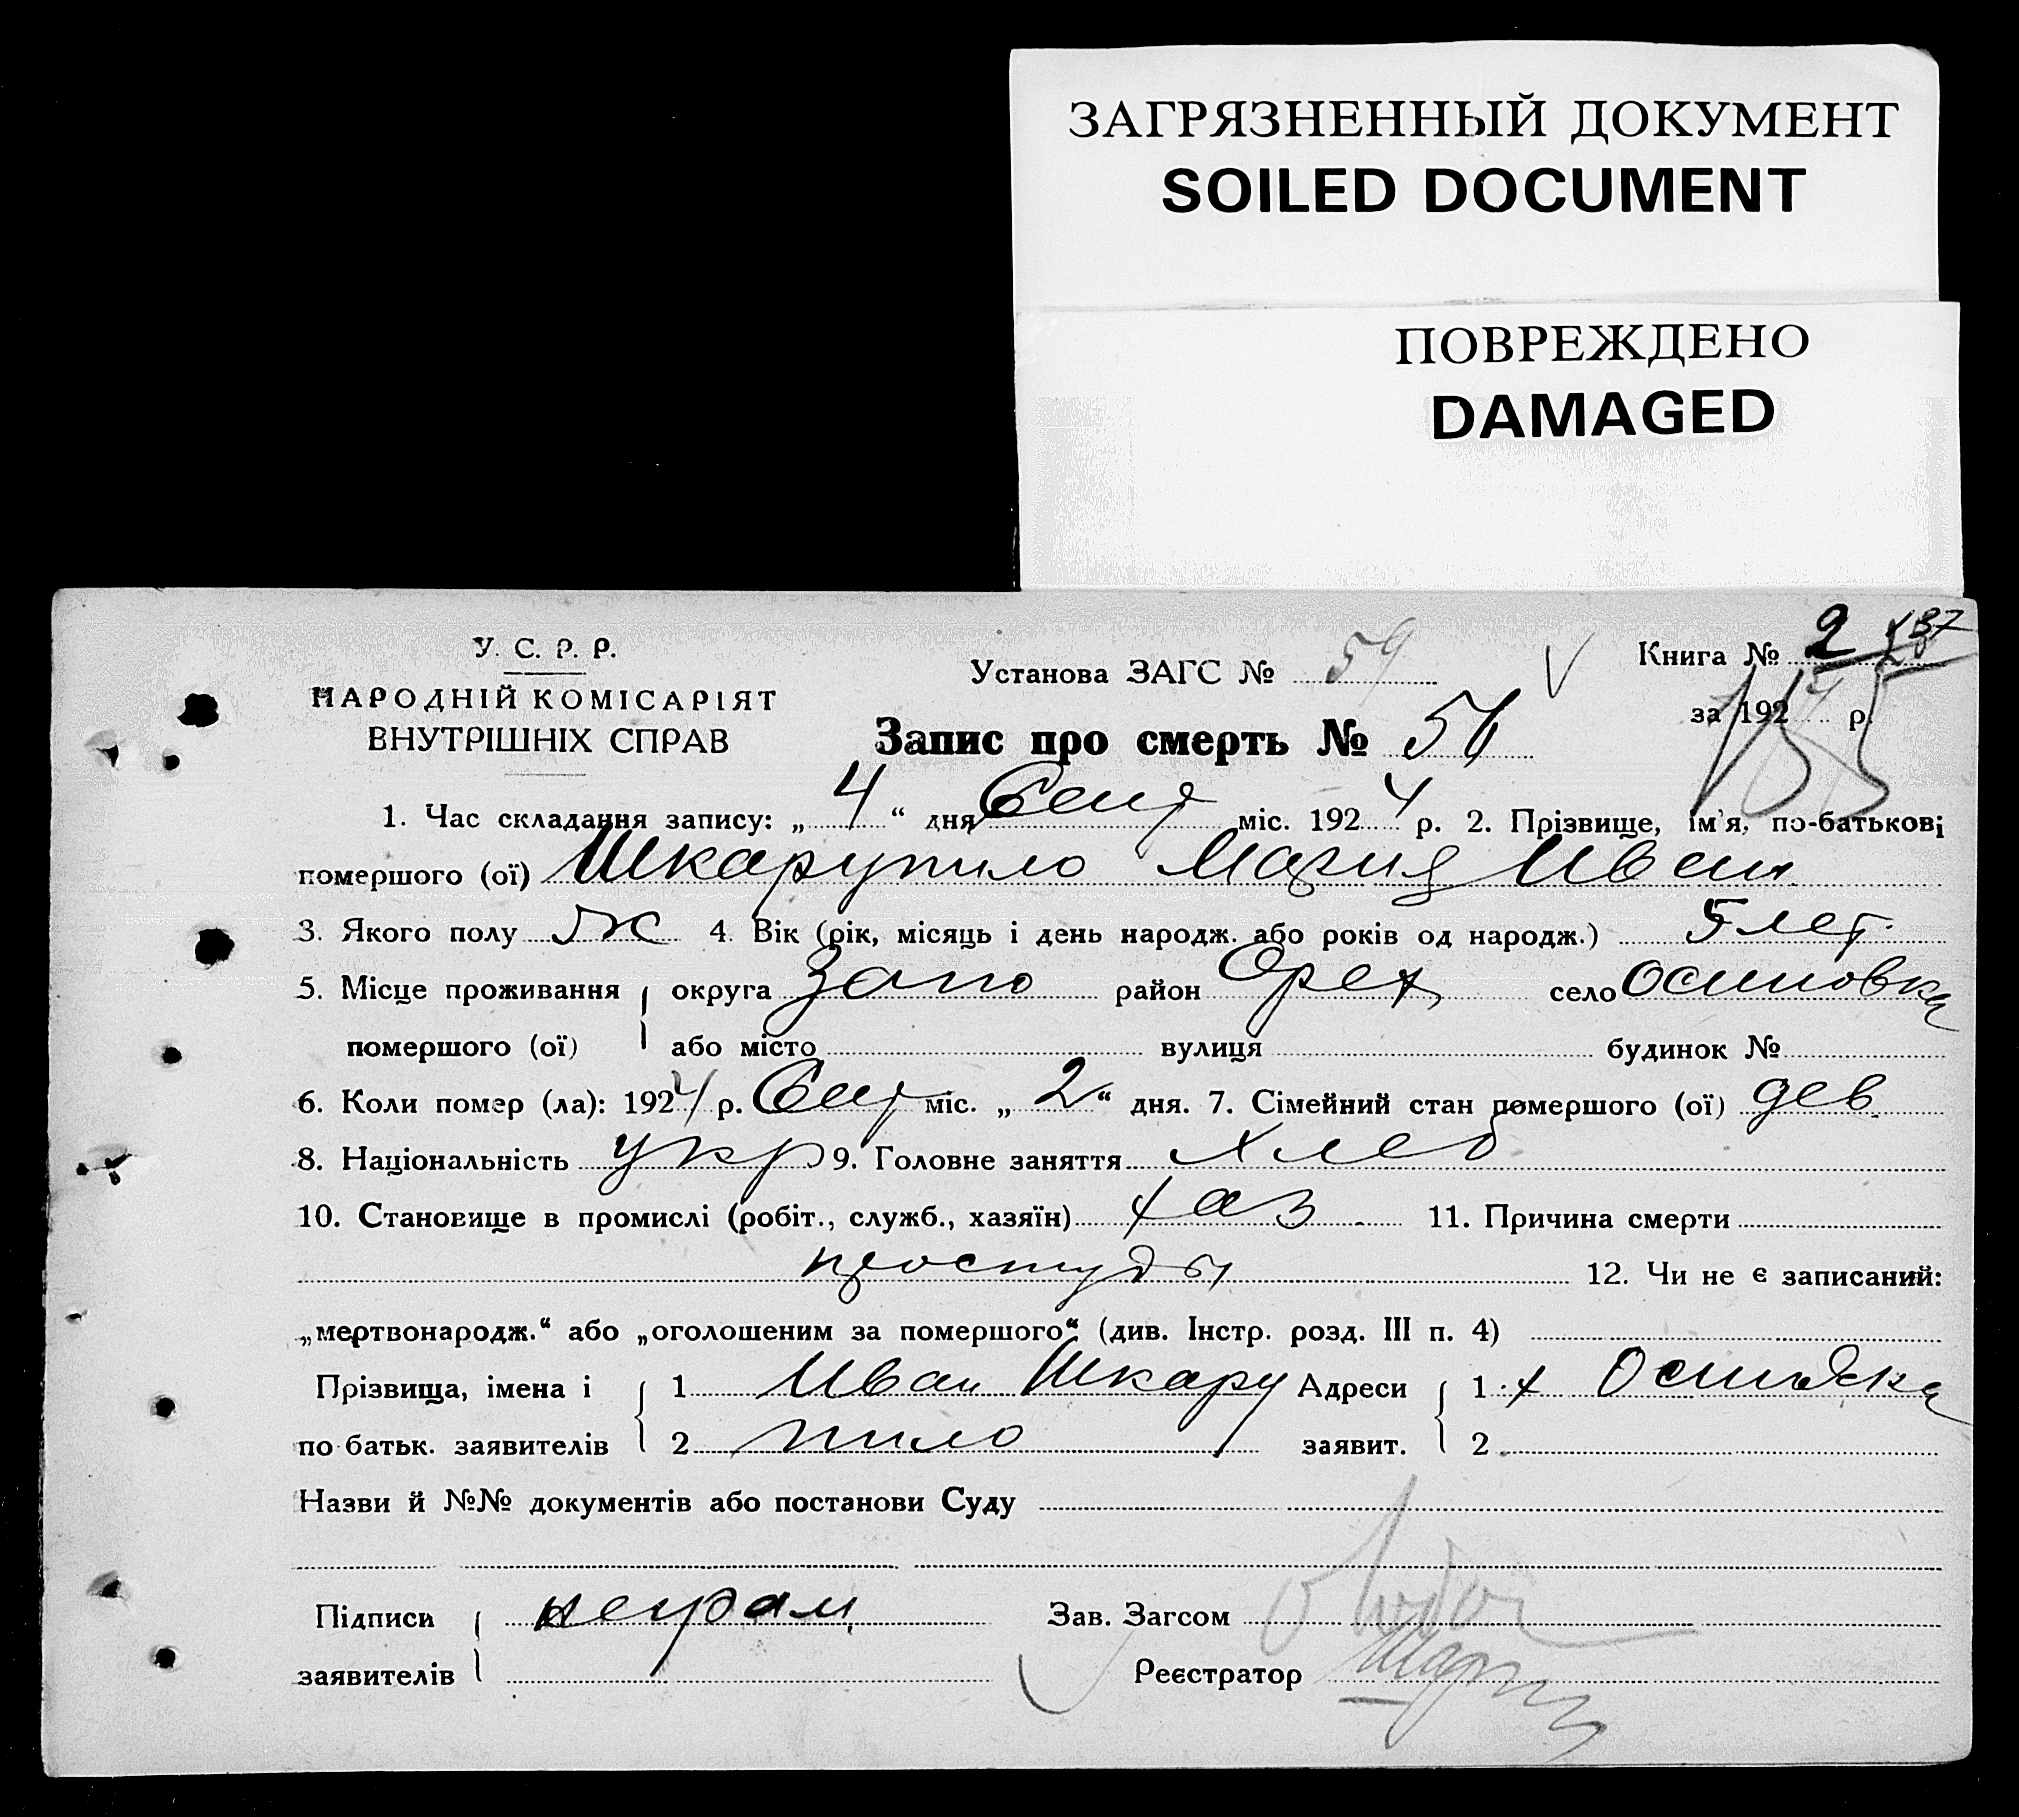 ЗАГРЯЗНЕННЫЙ ДОКУМЕНТ
SOILED DOCUMENT
ПОВРЕЖДЕНО
DAMAGED
У. С. Р. Р.
НАРОДНІЙ КОМІСАРІЯТ
ВНУТРІШНІХ СПРАВ
Установа ЗАГС № 59
Книга № 2
за 1924 р.
Запис про смерть № 56
1. Час складання запису: „4“ дня Сент міс. 1924 р. 2. Прізвище, ім'я, по-батькові
помершого (ої) Шкарупило Мария Иван
3. Якого полу ж 4. Вік (рік, місяць і день народж. або років од народж.) 5 лет.
5. Місце проживання округа Запо район Орех село Осиповка
помершого (ої) або місто вулиця будинок №
6. Коли помер (ла): 1924 р. Сент міс. „2“ дня. 7. Сімейний стан помершого (ої) дев
8. Національність укр 9. Головне заняття хлеб
10. Становище в промислі (робіт., служб., хазяїн) хаз 11. Причина смерти
простуды 12. Чи не є записаний:
„мертвонародж.“ або „оголошеним за помершого“ (див. Інстр. розд. III п. 4)
Прізвища, імена і 1 Иван Шкару Адреси 1 х
по батьк. заявителів 2 пило заявит. 2
Назви й №№ документів або постанови Суду
Підписи неграм Зав. Загсом
заявителів Реєстратор